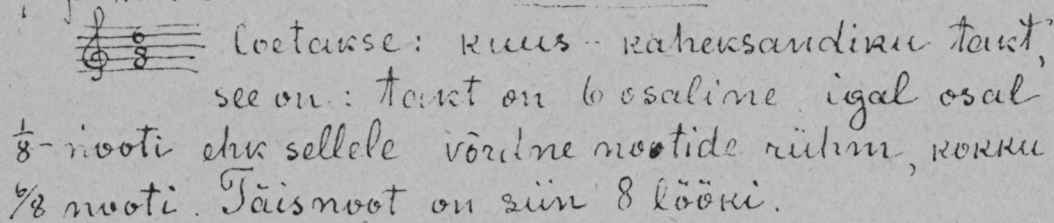 6/8 Loetakse: kuus-kaheksandiku takt,
see on: takt on 6 osaline igal osal
1/8-nooti ehk sellele võrdne nootide rühm, kokku
6/8 nooti. Täisnoot on siin 8 lööki.